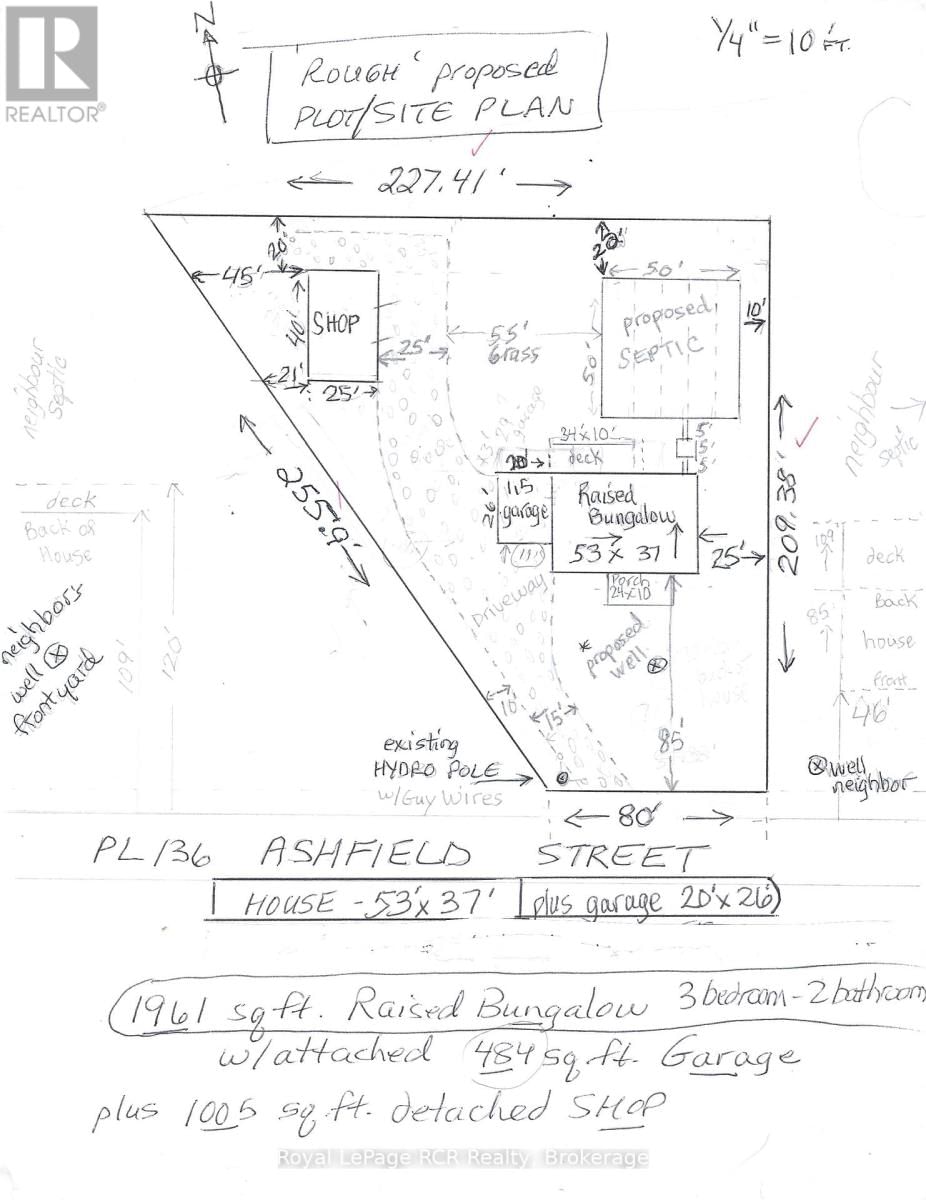 REALTOR®
N
1/4" = 10 FT.
ROUGH proposed
PLOT/SITE PLAN
227.41'
20'
20'
45'
50'
10'
40'
SHOP
proposed
SEPTIC
50'
55'
Grass
25'
21'
25'
neighbour
septic
neighbour
septic
garage
34'x10'
deck
5'
5'
5'
20'
26'
1.5
garage
Raised
Bungalow
53 x 37
25'
209.38'
255.9'
deck
Back of
House
neighbor's
well
frontyard
109'
120'
Driveway
Porch
24x10
* proposed
well
109'
deck
Back
85'
house
front
46'
10'
15'
85'
existing
HYDRO POLE
w/Guy Wires
well
neighbor
80'
PL 136 ASHFIELD STREET
HOUSE - 53'x 37' plus garage 20'x 26'
1961 sq ft. Raised Bungalow 3 bedroom - 2 bathroom
w/attached 484 sq.ft. Garage
plus 1005 sq.ft. detached SHOP
Royal LePage RCR Realty, Brokerage